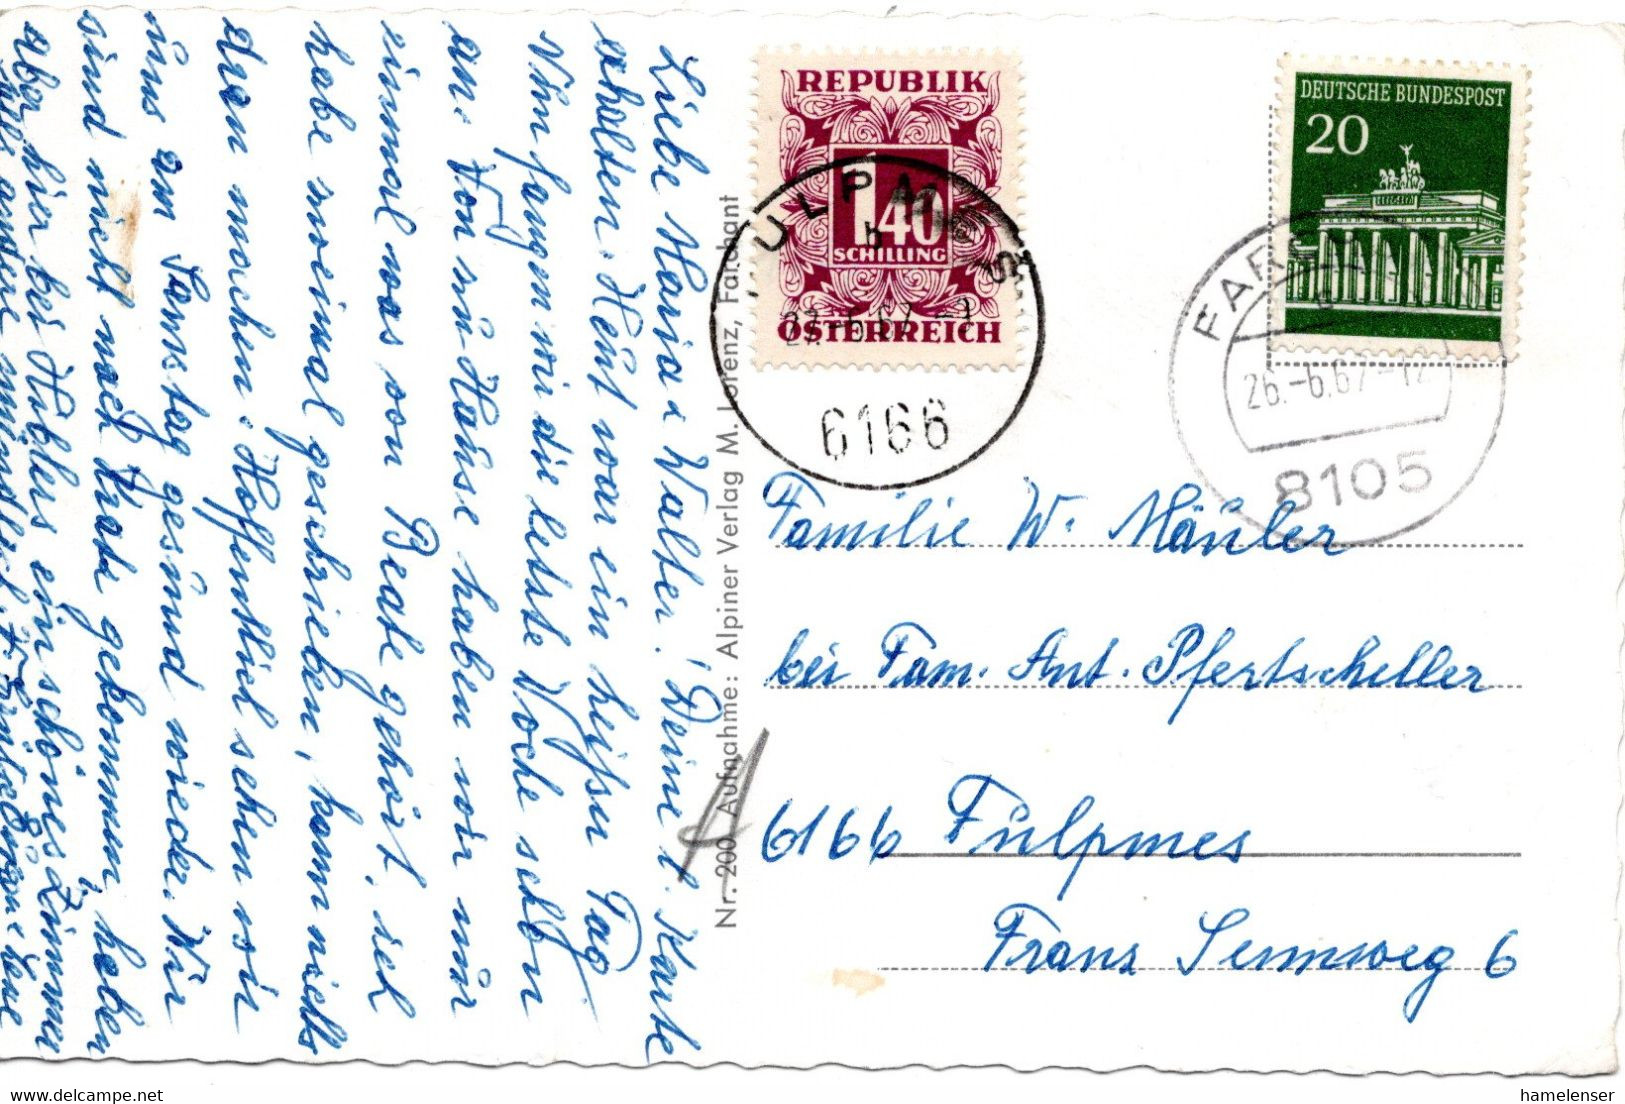 Liebe Maria u Walter! Deine l. Karte
erhalten. Heut war ein heißer Tag.
Nun fangen wir die letzte Woche schon
an. Von zu Hause haben wir nur
einmal was von Beate gehört, ich
habe noeimal geschrieben, kann nichts
dran machen. Hoffentlich sehen wir
uns am Samstag gesund wieder. Wir
sind nicht nach Grat gekommen, haben
aber hier bei Hubers ein schönes Zimmer
alles andere mündlich.
Nr. 200 Aufnahme: Alpiner Verlag M. Lorenz, Farchant
REPUBLIK
1.40
SCHILLING
ÖSTERREICH
FULPMES
b
27.-6.67
6166
DEUTSCHE BUNDESPOST
20
26.-6.67-17
8105
Familie W. Mäuler
bei Fam. Ant. Pfertscheller
6166 Fulpmes
Franz Sennweg 6
hamelenser